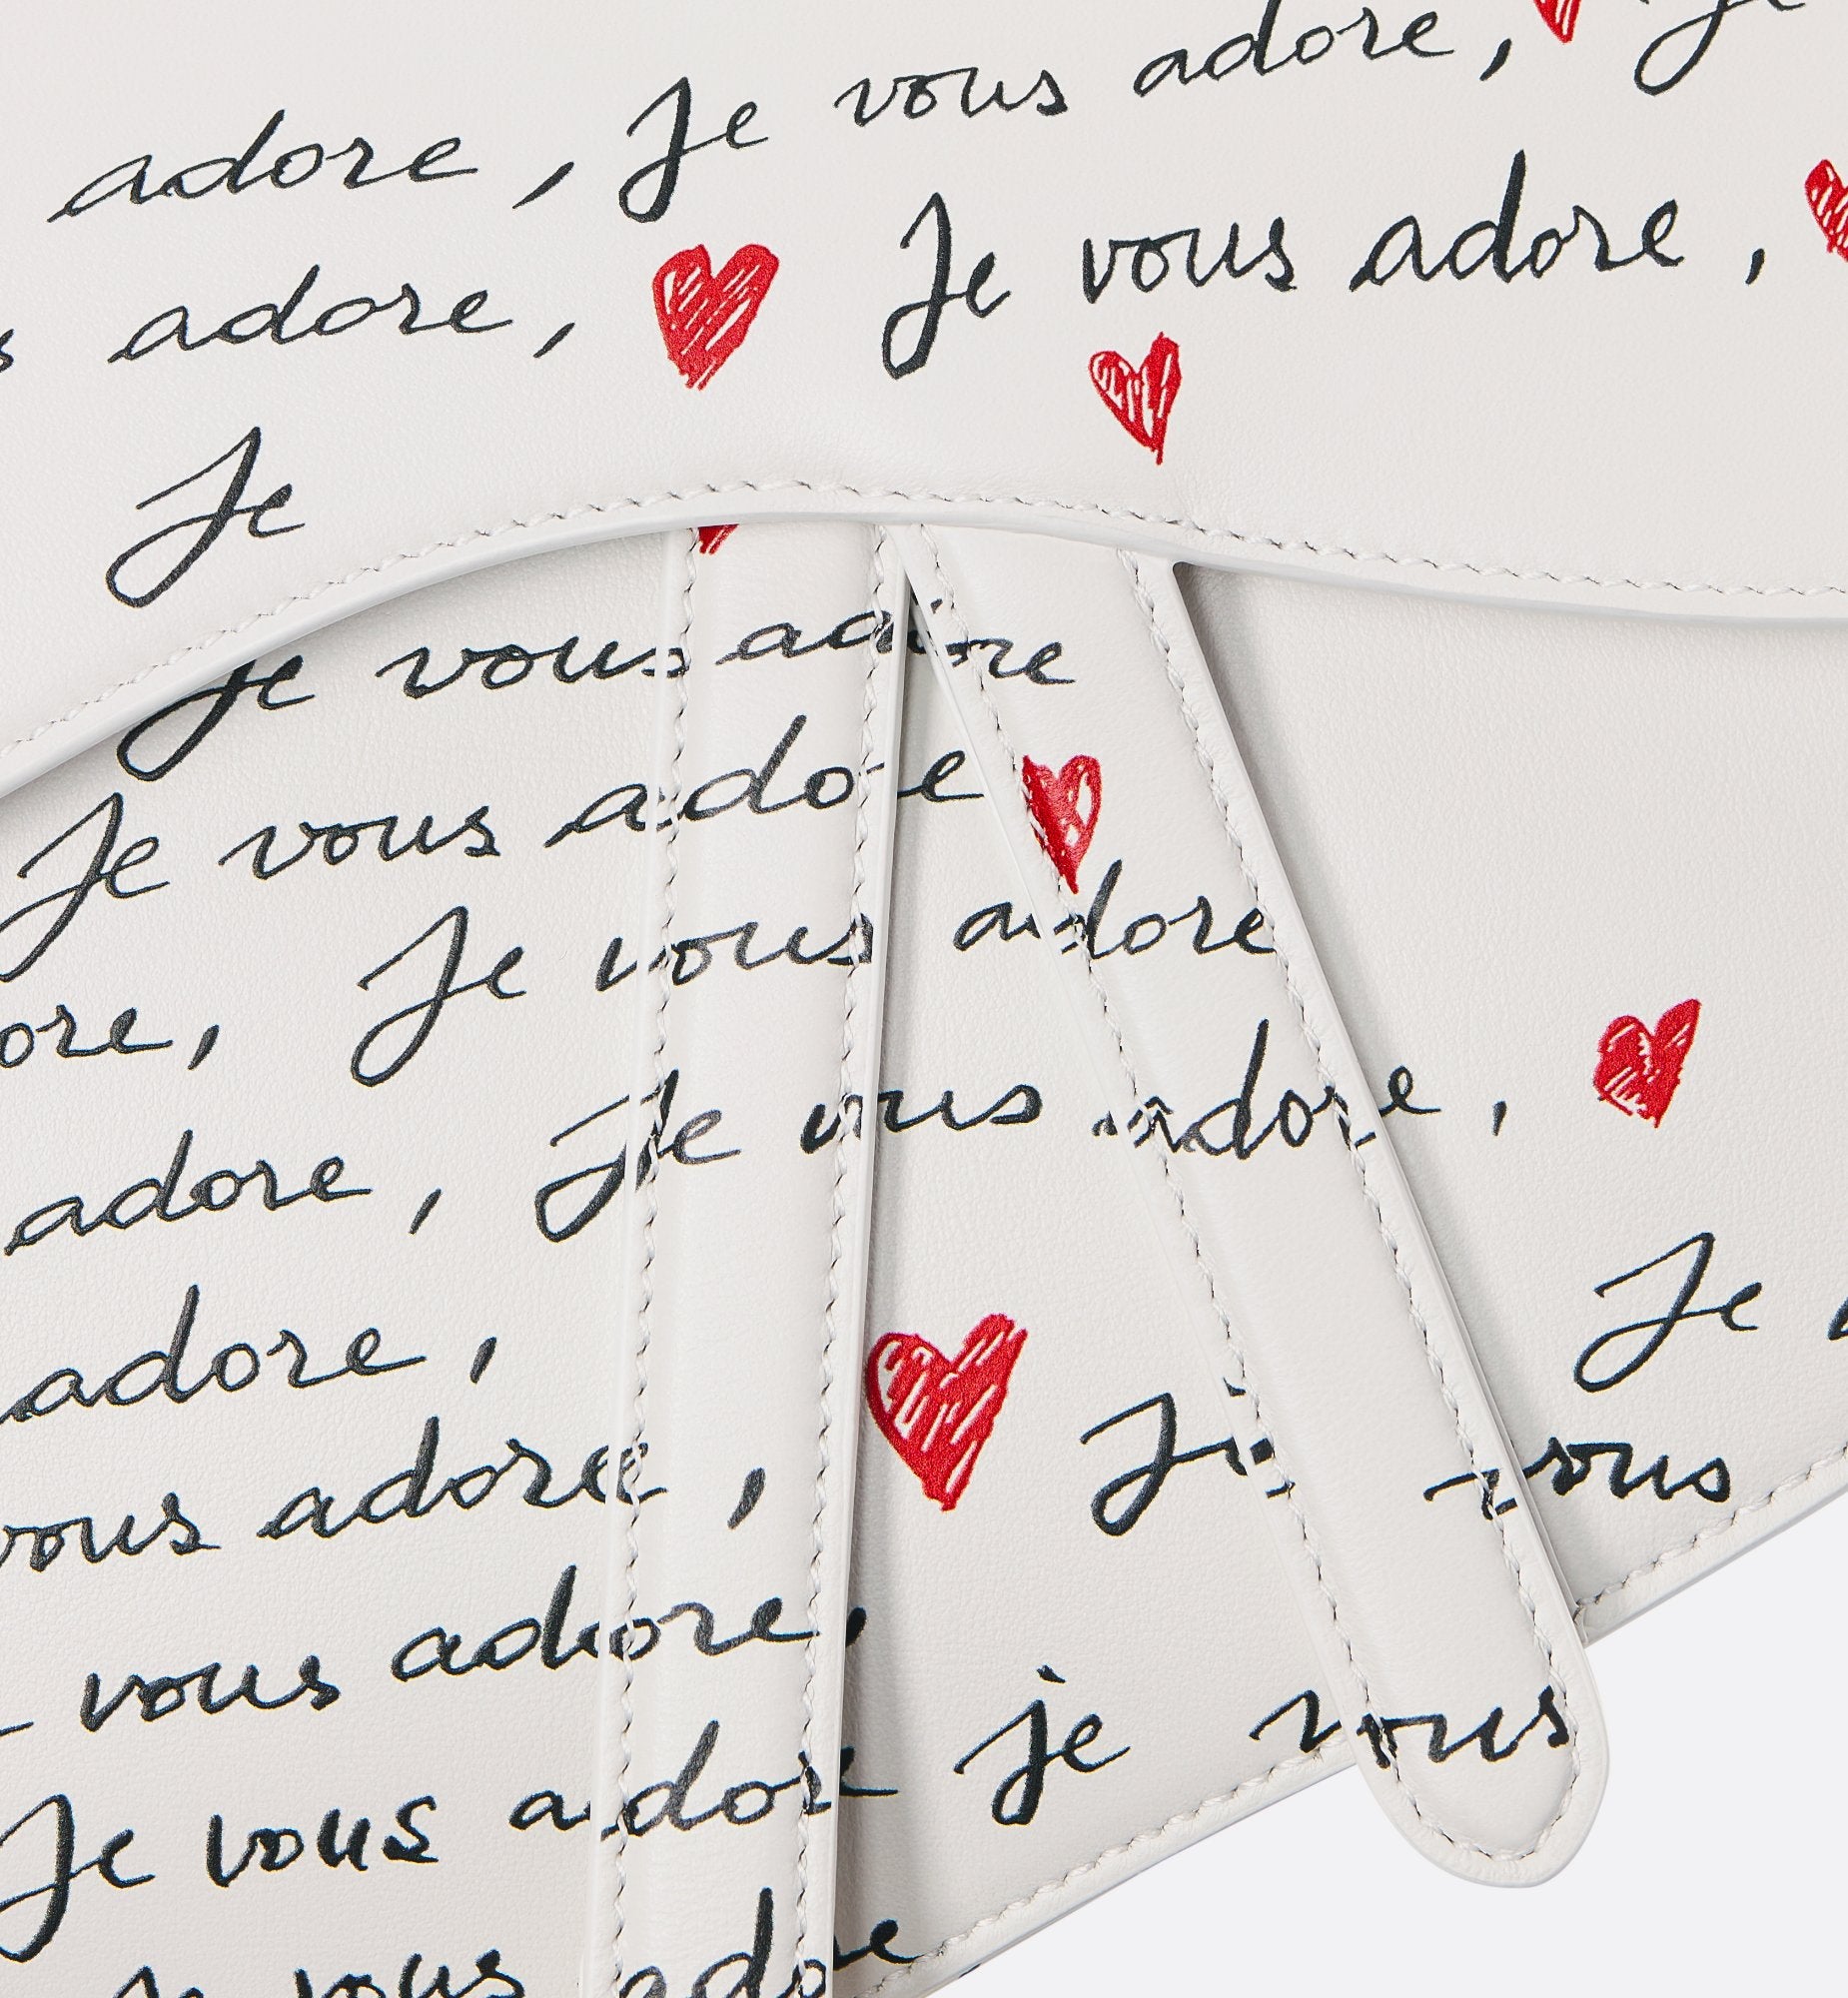 adore, Je vous adore, Je
adore, Je vous adore,
Je
Je vous adore
Je vous adore
ore, Je vous adore
adore, Je vous adore,
Je
adore,
vous adore, Je vous
vous adore,
Je vous adore je vous
vous adore